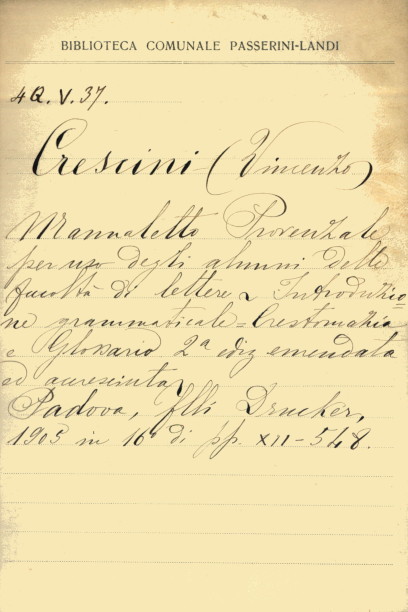 BIBLIOTECA COMUNALE PASSERINI-LANDI
4Q.V.37.
Crescini (Vincenzo)
Manualetto Provenzale
per uso degli alunni delle
facoltà di lettere ~ Introduzio=
ne grammaticale = Crestomazia
e Glossario 2ª ediz emendata
ed accresciuta
Padova, flli Drucker,
1905 in 16° di pp. XII-548.